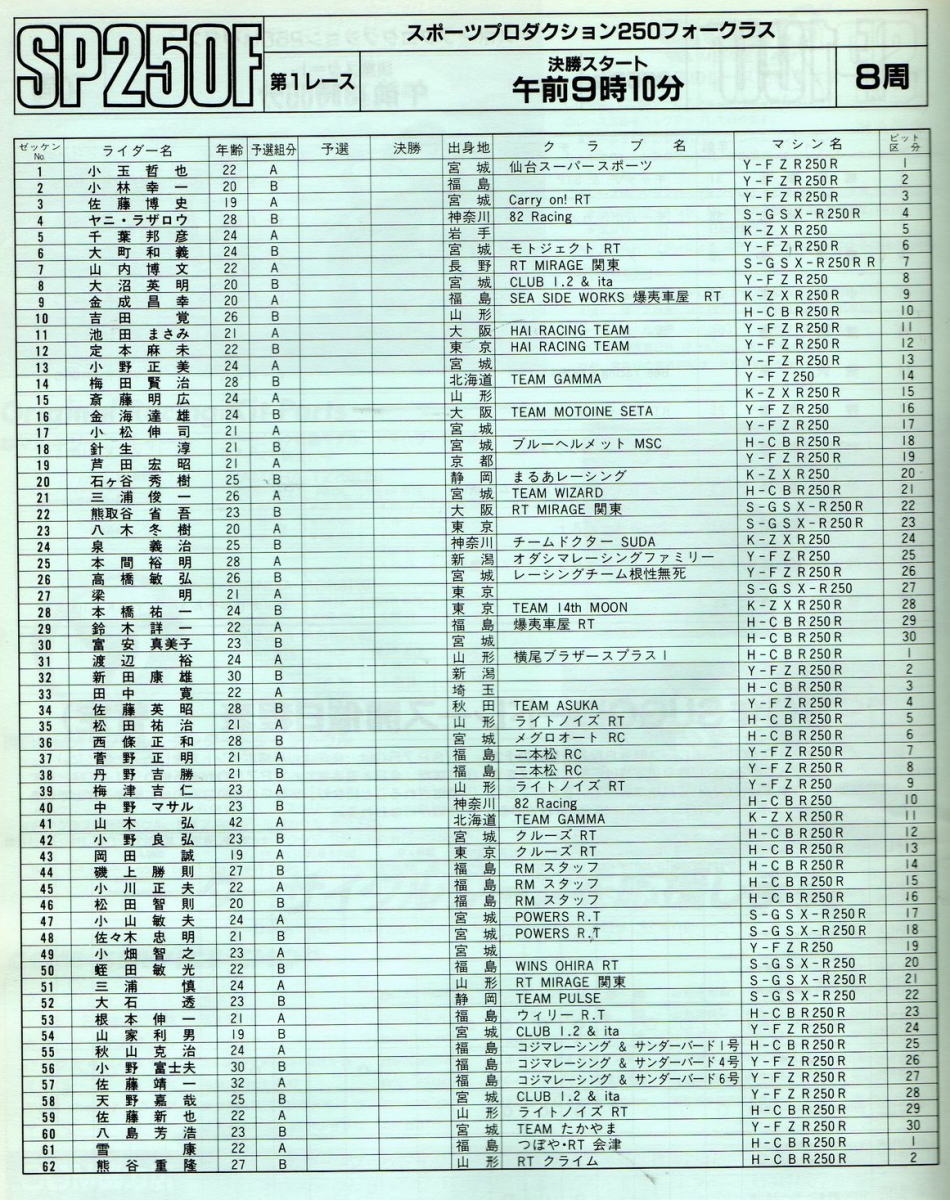 SP250F
スポーツプロダクション250フォークラス
第1レース
決勝スタート
午前9時10分
8周
ゼッケンNo. ライダー名 年齢 予選組分 予選 決勝 出身地 クラブ名 マシン名 ピット区分
1 小玉哲也 22 A 宮城 仙台スーパースポーツ Y-FZR250R 1
2 小林幸一 20 B 福島 Y-FZR250R 2
3 佐藤博史 19 A 宮城 Carry on! RT Y-FZR250R 3
4 ヤニ・ラザロウ 28 B 神奈川 82 Racing S-GSX-R250R 4
5 千葉邦彦 24 A 岩手 K-ZXR250 5
6 大町和義 24 B 宮城 モトジェクト RT Y-FZR250R 6
7 山内博文 22 A 長野 RT MIRAGE 関東 S-GSX-R250RR 7
8 大沼英明 20 B 宮城 CLUB 1.2 & ita Y-FZR250 8
9 金成昌幸 20 A 福島 SEA SIDE WORKS 爆夷車屋 RT K-ZXR250R 9
10 吉田覚 26 B 山形 H-CBR250R 10
11 池田まさみ 21 A 大阪 HAI RACING TEAM Y-FZR250R 11
12 定本麻未 22 B 東京 HAI RACING TEAM Y-FZR250R 12
13 小野正美 24 A 宮城 Y-FZR250R 13
14 梅田賢治 28 B 北海道 TEAM GAMMA Y-FZ250 14
15 斎藤明広 24 A 山形 K-ZXR250R 15
16 金海達雄 24 B 大阪 TEAM MOTOINE SETA Y-FZR250 16
17 小松伸司 21 A 宮城 Y-FZR250 17
18 針生淳 21 B 宮城 ブルーヘルメット MSC H-CBR250R 18
19 芦田宏昭 21 A 京都 Y-FZR250R 19
20 石ヶ谷秀樹 25 B 静岡 まるあレーシング K-ZXR250 20
21 三浦俊一 26 A 宮城 TEAM WIZARD H-CBR250R 21
22 熊取谷省吾 23 B 大阪 RT MIRAGE 関東 S-GSX-R250R 22
23 八木冬樹 20 A 東京 S-GSX-R250R 23
24 泉義治 25 B 神奈川 チームドクター SUDA K-ZXR250 24
25 本間裕明 28 A 新潟 オダシマレーシングファミリー Y-FZR250 25
26 高橋敏弘 26 B 宮城 レーシングチーム根性無死 Y-FZR250R 26
27 梁明 21 A 東京 S-GSX-R250 27
28 本橋祐一 24 B 東京 TEAM 14th MOON K-ZXR250R 28
29 鈴木詳一 22 A 福島 爆夷車屋 RT H-CBR250R 29
30 富安真美子 23 B 宮城 H-CBR250R 30
31 渡辺裕 24 A 山形 横尾ブラザースプラス1 H-CBR250R 1
32 新田康雄 30 B 新潟 Y-FZR250R 2
33 田中寛 22 A 埼玉 H-CBR250R 3
34 佐藤英昭 28 B 秋田 TEAM ASUKA Y-FZR250R 4
35 松田祐治 21 A 山形 ライトノイズ RT H-CBR250R 5
36 西條正和 28 B 宮城 メグロオート RC H-CBR250R 6
37 菅野正明 21 A 福島 二本松 RC Y-FZR250R 7
38 丹野吉勝 21 B 福島 二本松 RC Y-FZR250R 8
39 梅津吉仁 23 A 山形 ライトノイズ RT Y-FZR250 9
40 中野マサル 23 B 神奈川 82 Racing H-CBR250 10
41 山木弘 42 A 北海道 TEAM GAMMA K-ZXR250R 11
42 小野良弘 23 B 宮城 クルーズ RT H-CBR250R 12
43 岡田誠 19 A 東京 クルーズ RT H-CBR250R 13
44 磯上勝則 27 B 福島 RM スタッフ H-CBR250R 14
45 小川正夫 22 A 福島 RM スタッフ H-CBR250R 15
46 松田智則 20 B 福島 RM スタッフ H-CBR250R 16
47 小山敏夫 24 A 宮城 POWERS R.T S-GSX-R250R 17
48 佐々木忠明 21 B 宮城 POWERS R.T S-GSX-R250R 18
49 小畑智之 23 A 宮城 Y-FZR250 19
50 蛭田敏光 22 B 福島 WINS OHIRA RT S-GSX-R250R 20
51 三浦慎 24 A 山形 RT MIRAGE 関東 S-GSX-R250R 21
52 大石透 23 B 静岡 TEAM PULSE S-GSX-R250 22
53 根本伸一 21 A 福島 ウィリー R.T H-CBR250R 23
54 山家利男 19 B 宮城 CLUB 1.2 & ita Y-FZR250R 24
55 秋山克治 24 A 福島 コジマレーシング & サンダーバード1号 H-CBR250R 25
56 小野富士夫 30 B 福島 コジマレーシング & サンダーバード4号 Y-FZR250R 26
57 佐藤靖一 32 A 福島 コジマレーシング & サンダーバード6号 Y-FZR250R 27
58 天野嘉哉 25 B 宮城 CLUB 1.2 & ita Y-FZR250R 28
59 佐藤新也 22 A 山形 ライトノイズ RT H-CBR250R 29
60 八島芳浩 23 B 宮城 TEAM たかやま Y-FZR250R 30
61 雪康 22 A 福島 つぼや・RT 会津 H-CBR250R 1
62 熊谷重隆 27 B 山形 RT クライム H-CBR250R 2